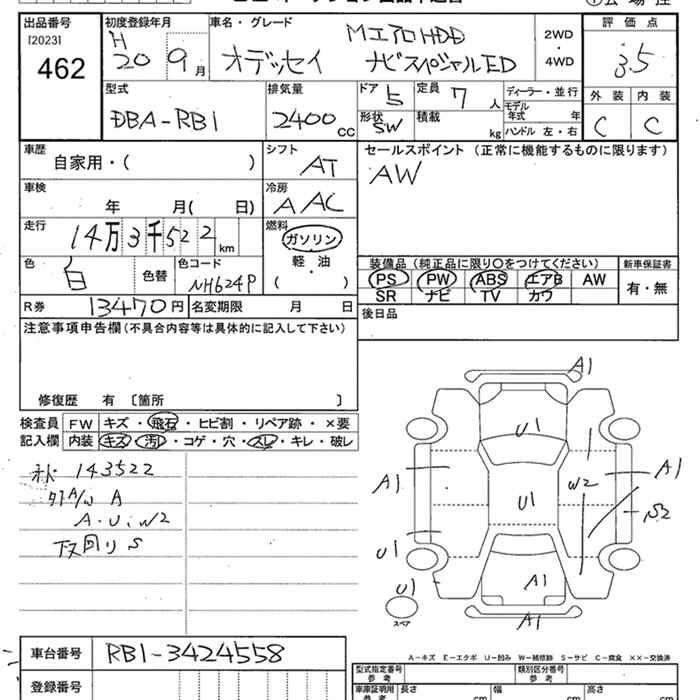 出品番号
[2023]
462
初度登録年月
H
20 9月
車名・グレード
MエアロHDD
オデッセイ ナビスペシャルED
2WD
・
4WD
評価点
3.5
型式
DBA-RB1
排気量
2400cc
ドア 5
定員 7人
形状 SW
積載 kg
ディーラー・並行
モデル年式 年
ハンドル 左・右
外装 内装
C C
車歴
自家用・( )
シフト
AT
セールスポイント (正常に機能するものに限ります)
AW
車検
年 月( 日)
冷房
AAC
走行
14万3千522km
燃料
ガソリン
軽・油
( )
色
白 色替
色コード
NH624P
装備品 (純正品に限り〇をつけてください)
PS PW ABS エアB AW
SR ナビ TV カワ
新車保証書
有・無
R券 13470円 名変期限 月 日
後日品
注意事項申告欄(不具合内容等は具体的に記入して下さい)
修復歴 有 〔箇所 〕
検査員 FW キズ・飛石・ヒビ割・リペア跡・×要
記入欄 内装 キズ・汚レ・コゲ・穴・スレ・キレ・破レ
143522
A
A・U・W2
下回りS
A1
U1
A1
U1
W2
A1
S2
U1
U1
A1
スペア
A1
A-キズ E-エクボ U-凹み W-補修跡 S-サビ C-腐食 ××-交換済
車台番号 RB1-3424558
登録番号
型式指定番号
参考
類別区分番号
参考
車庫証明用
参考
長さ cm
幅 cm
高さ cm